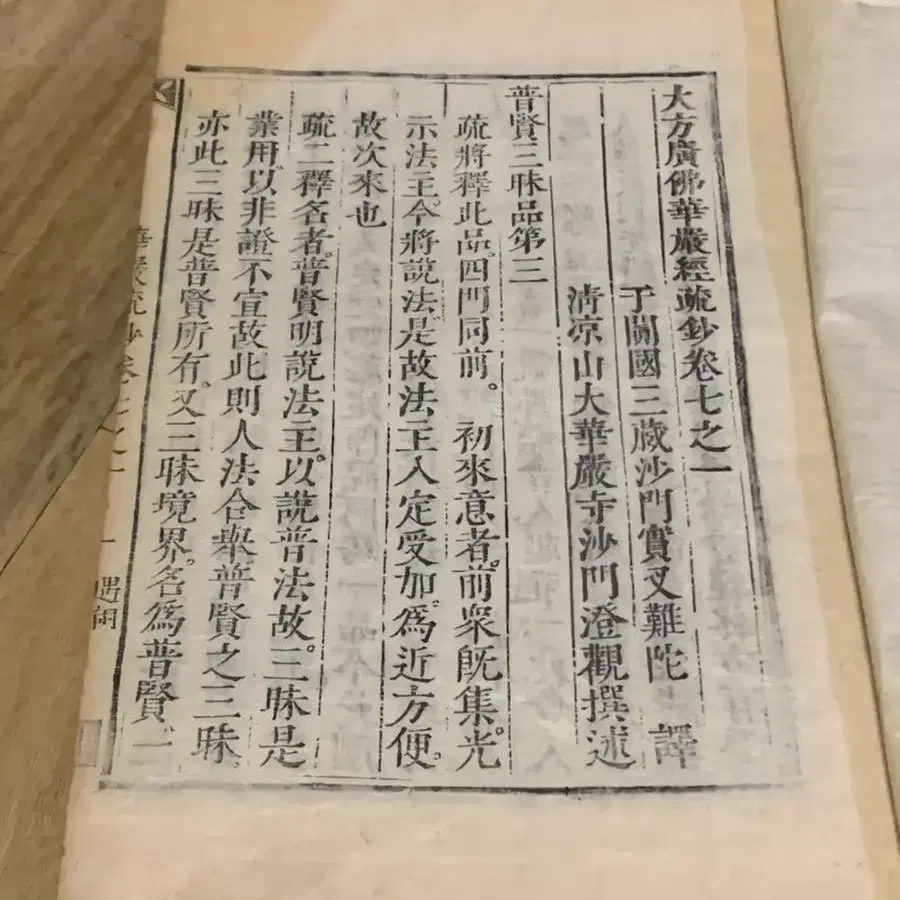 大方廣佛華嚴經疏鈔卷七之一
于闐國三藏沙門實叉難陀　譯
清凉山大華嚴寺沙門澄觀撰述
普賢三昧品第三
疏將釋此品。四門同前。　初來意者。前衆旣集。光
示法主。今將說法。是故法主入定受加。爲近方便。
故次來也
疏二釋名者。普賢明說法主。以說普法故。三昧是
業用。以非證不宣故。此則人法合舉。普賢之三昧。
亦此三昧是普賢所有。又三昧境界。名爲普賢。一
華嚴疏鈔卷七之一　一